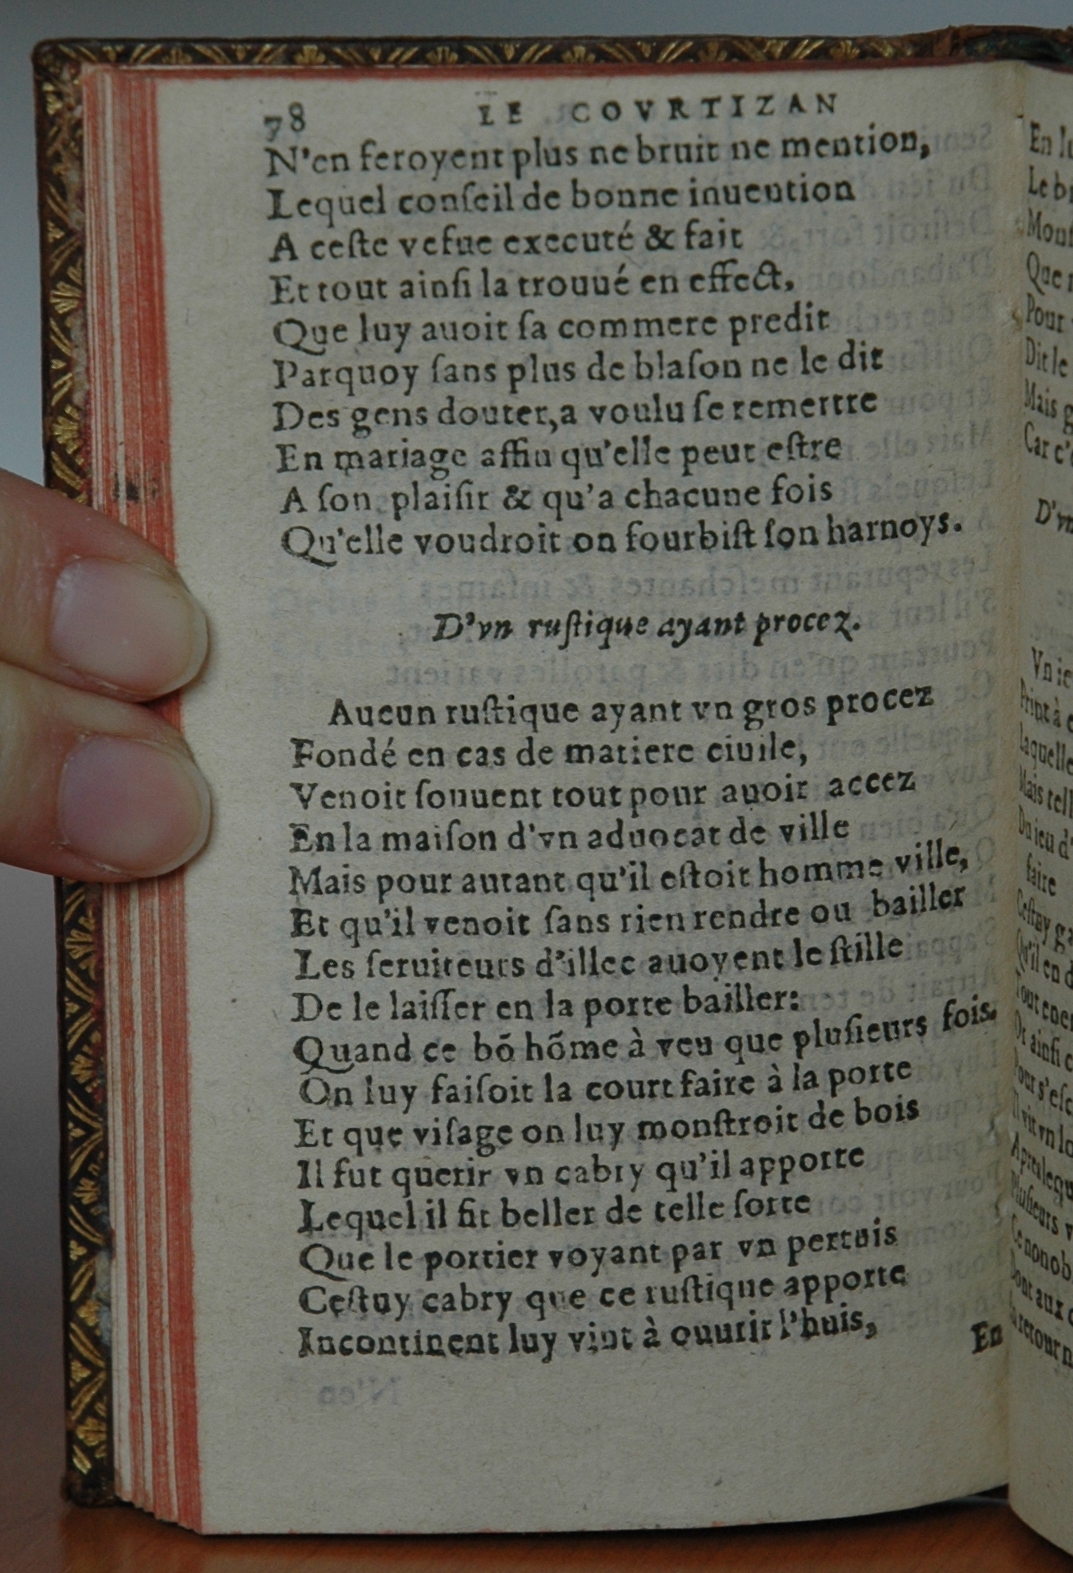 78 LE COVRTIZAN
N'en feroyent plus ne bruit ne mention,
Lequel conſeil de bonne inuention
A ceſte vefue executé & fait
Et tout ainſi la trouué en effect.
Que luy auoit ſa commere predit
Parquoy ſans plus de blaſon ne le dit
Des gens douter, a voulu ſe remettre
En mariage affin qu'elle peut eſtre
A ſon plaiſir & qu'a chacune fois
Qu'elle voudroit on fourbiſt ſon harnoys.
D'vn ruſtique ayant procez.
Aucun ruſtique ayant vn gros procez
Fondé en cas de matiere ciuile,
Venoit ſouuent tout pour auoir accez
En la maiſon d'vn aduocat de ville
Mais pour autant qu'il eſtoit homme ville,
Et qu'il venoit ſans rien rendre ou bailler
Les ſeruiteurs d'illec auoyent le ſtille
De le laiſſer en la porte bailler:
Quand ce bõ hõme à veu que pluſieurs fois.
On luy faiſoit la court faire à la porte
Et que viſage on luy monſtroit de bois
Il fut querir vn cabry qu'il apporte
Lequel il fit beller de telle ſorte
Que le portier voyant par vn pertuis
Ceſtuy cabry que ce ruſtique apporte
Incontinent luy vint à ouurir l'huis,
En
En lu
Le b
Mou
Que
Pour
Dit le
Mais g
Car c'e
D'vn
Vn ie
Print à
laquelle
Mais tell
Du ieu d'
faire
Ceſtuy ga
Qu'il en d
Tout ener
Or ainſi c
Pour s'eſc
Il vit vn lo
Apres lequ
Pluſieurs v
Ce nonob
Dont aux
retourn